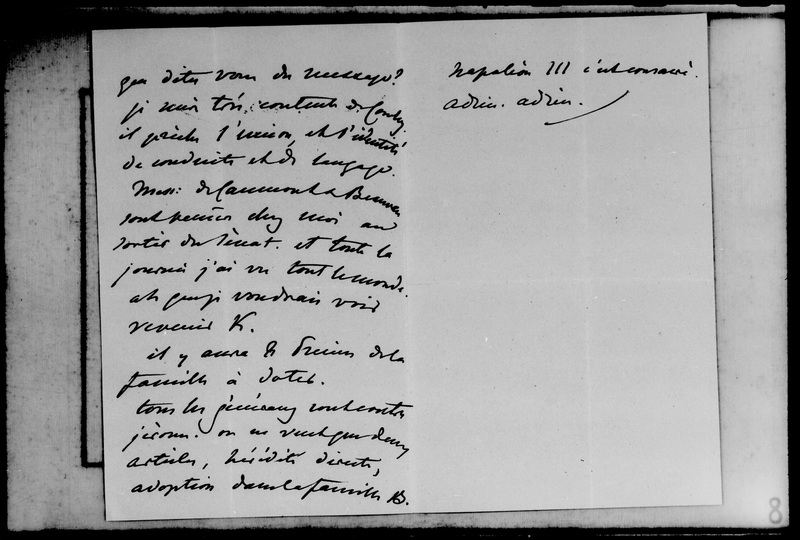 que dites vous du message?
je suis très contente de
il prêche l'union, et l'identité
de conduite et de langage.
Mess: de Caumont &
sont venus chez moi au
sortir du Sénat. et toute la
journée j'ai vu tout le monde.
ah que je voudrais voir
revenir V.
il y aura 8 Princes de la
famille à doter.
tous les généraux sont contre
jérôme. on ne veut que deux
articles, hérédité directe,
adoption dans la famille B.
Napoléon III c'est consacré.
adieu. adieu.
8